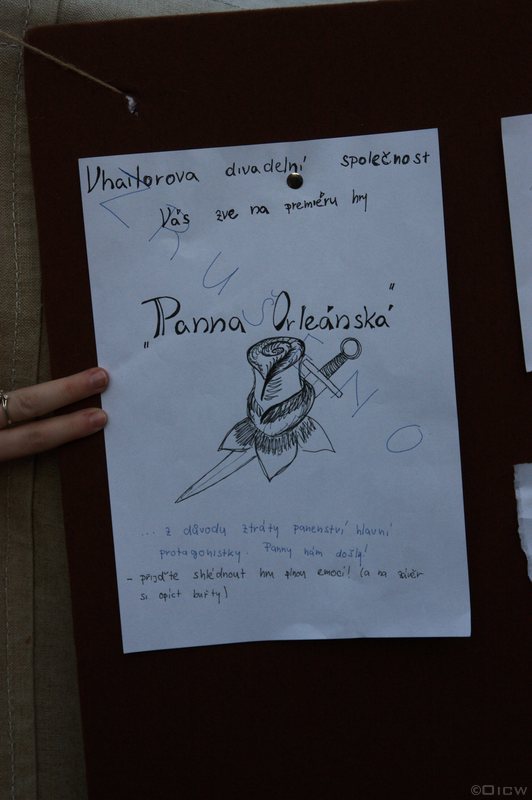 Vhailorova divadelní společnost
Vás zve na premiéru hry
ZRUŠENO
"Panna Orleánská"
... z důvodu ztráty panenství hlavní
protagonistky. Panny nám došly!
- přijďte shlédnout hru plnou emocí! (a na závěr
si opíct buřty)
©Oicw